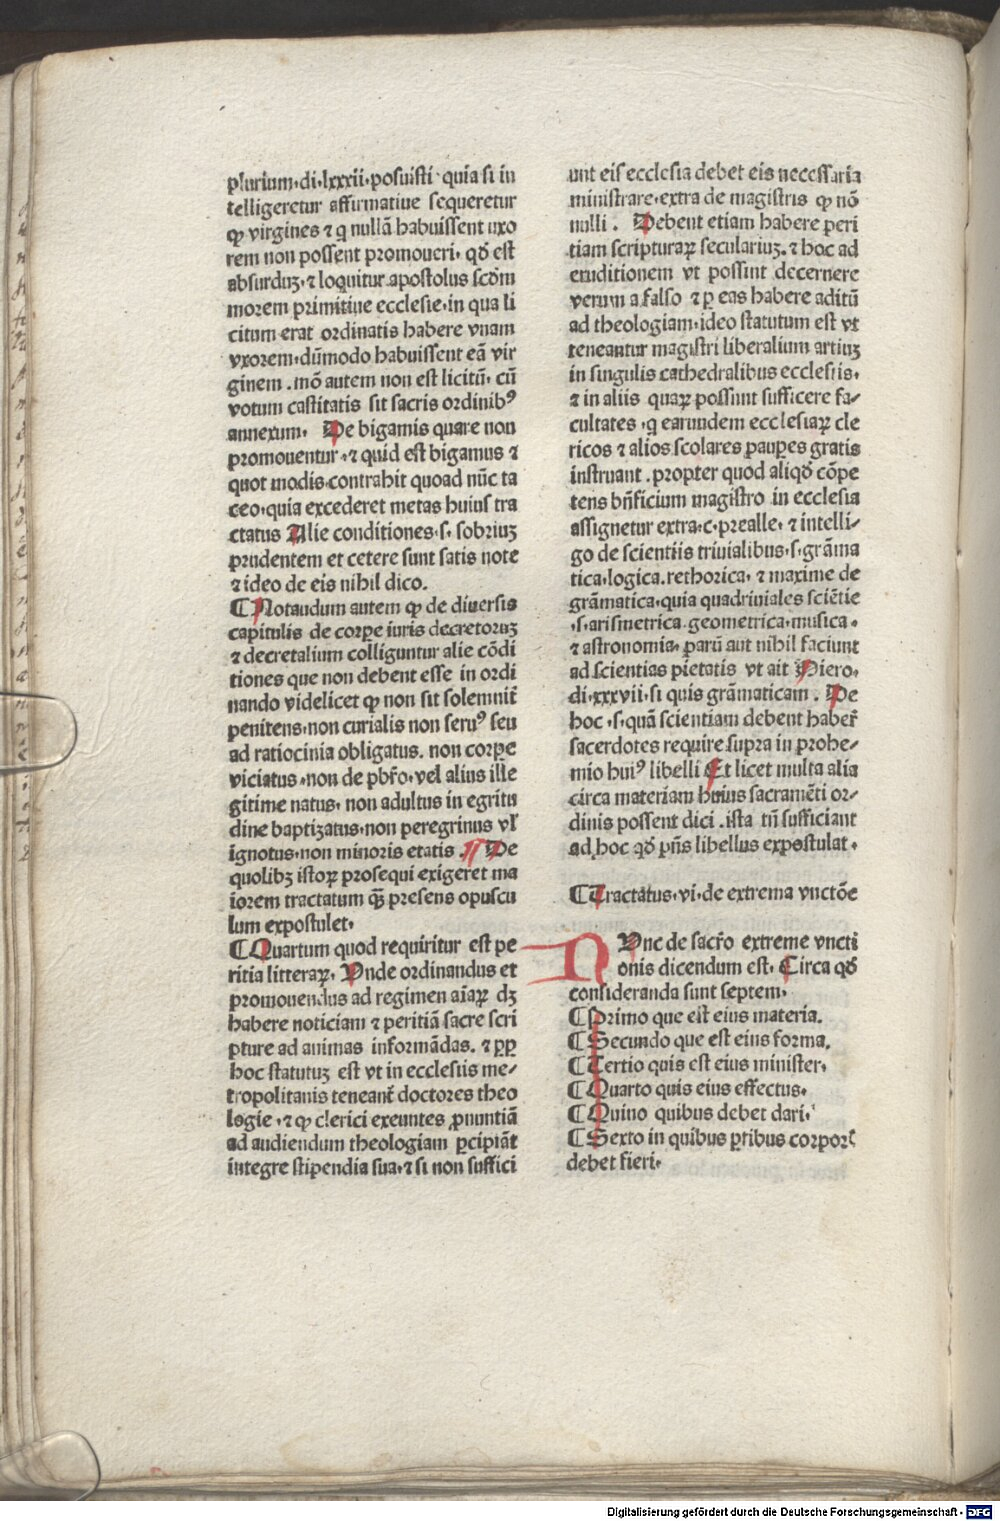 plurium·di·lxxxii·posuisti· quia si in
telligeretur affirmatiue sequeretur
ꝙ virgines ⁊ q̄ nullā habuissent uxo
rem non possent promoueri· qd̄ est
absurduꝫ·⁊ loquitur apostolus scd̄m
morem primitiue ecclesie·in qua li
citum erat ordinatis habere vnam
vxorem·dūmodo habuissent eā vir
ginem .mō autem non est licitū· cū
votum castitatis sit sacris ordinibꝰ
annexum· De bigamis quare non
promouentur·⁊ quid est bigamus ⁊
quot modis·contrahit quoad nūc ta
ceo·quia excederet metas huius tra
ctatus Alie conditiones·s· sobriuꝫ
prudentem et cetere sunt satis note
⁊ ideo de eis nihil dico.
¶ Notandum autem ꝙ de diuersis
capitulis de corpe iuris decretoruꝫ
⁊ decretalium colliguntur alie cōdi
tiones que non debent esse in ordi
nando videlicet ꝙ non sit solemnit̄
penitens·non curialis non seruꝰ seu
ad ratiocinia obligatus. non corpe
viciatus·non de pb̄ro·vel alius ille
gitime natus· non adultus in egritu
dine baptizatus·non peregrinus vl̄
ignotus·non minoris etatis . De
quolibꝫ istoꝝ prosequi exigeret ma
iorem tractatum q̄ꝫ presens opuscu
lum expostulet·
¶ Quartum quod requiritur est pe
ritia litteraꝝ. Vnde ordinandus et
promouendus ad regimen aīaꝝ dꝫ
habere noticiam ⁊ peritiā sacre scri
pture ad animas informādas. ⁊ ꝓp̄
hoc statutuꝫ est vt in ecclesiis me⸗
tropolitanis teneant̄ doctores theo
logie·⁊ ꝙ clerici exeuntes ꝓnuntiā
ad audiendum theologiam ꝑcipiāt
integre stipendia sua·⁊ si non suffici
unt eis ecclesia debet eis necessaria
ministrare·extra de magistris ꝙ nō
nulli . Debent etiam habere peri
tiam scripturaꝝ seculariuꝫ. ⁊ hoc ad
eruditionem vt possint decernere
verum a falso ⁊ ꝑ eas habere aditū
ad theologiam·ideo statutum est vt
teneantur magistri liberalium artiuꝫ
in singulis cathedralibus ecclesiis·
⁊ in aliis quaꝝ possunt sufficere fa⸗
cultates ·q̄ earundem ecclesiaꝝ cle
ricos ⁊ alios scolares pauꝑes gratis
instruant .propter quod aliqd̄ cōpe
tens bn̄ficium magistro in ecclesia
assignetur extra·c·prealle· ⁊ intelli⸗
go de scientiis triuialibus·s·grāma
tica·logica.rethorica· ⁊ maxime de
grāmatica·quia quadriuiales sciētie
·s·arismetrica·geometrica·musica·
⁊ astronomia· parū aut nihil faciunt
ad scientias pietatis vt ait Hiero·
di·xxxvii·si quis grāmaticam . De
hoc ·s·quā scientiam debent haber̄
sacerdotes require supra in prohe⸗
mio huiꝰ libelli Et licet multa alia
circa materiam huius sacramēti or⸗
dinis possent dici .ista tn̄ sufficiant
ad hoc qd̄ pn̄s libellus expostulat·
¶ Tractatus·vi·de extrema vnctōe
NVnc de sacr̄o extreme vncti
onis dicendum est. Circa qd̄
consideranda sunt septem·
¶ Primo que est eius materia.
¶ Secundo que est eius forma.
¶ Tertio quis est eius minister·
¶ Quarto quis eius effectus·
¶ Quino quibus debet dari·
¶ Sexto in quibus ꝑtibus corporꝭ
debet fieri·
Digitalisierung gefördert durch die Deutsche Forschungsgemeinschaft - DFG